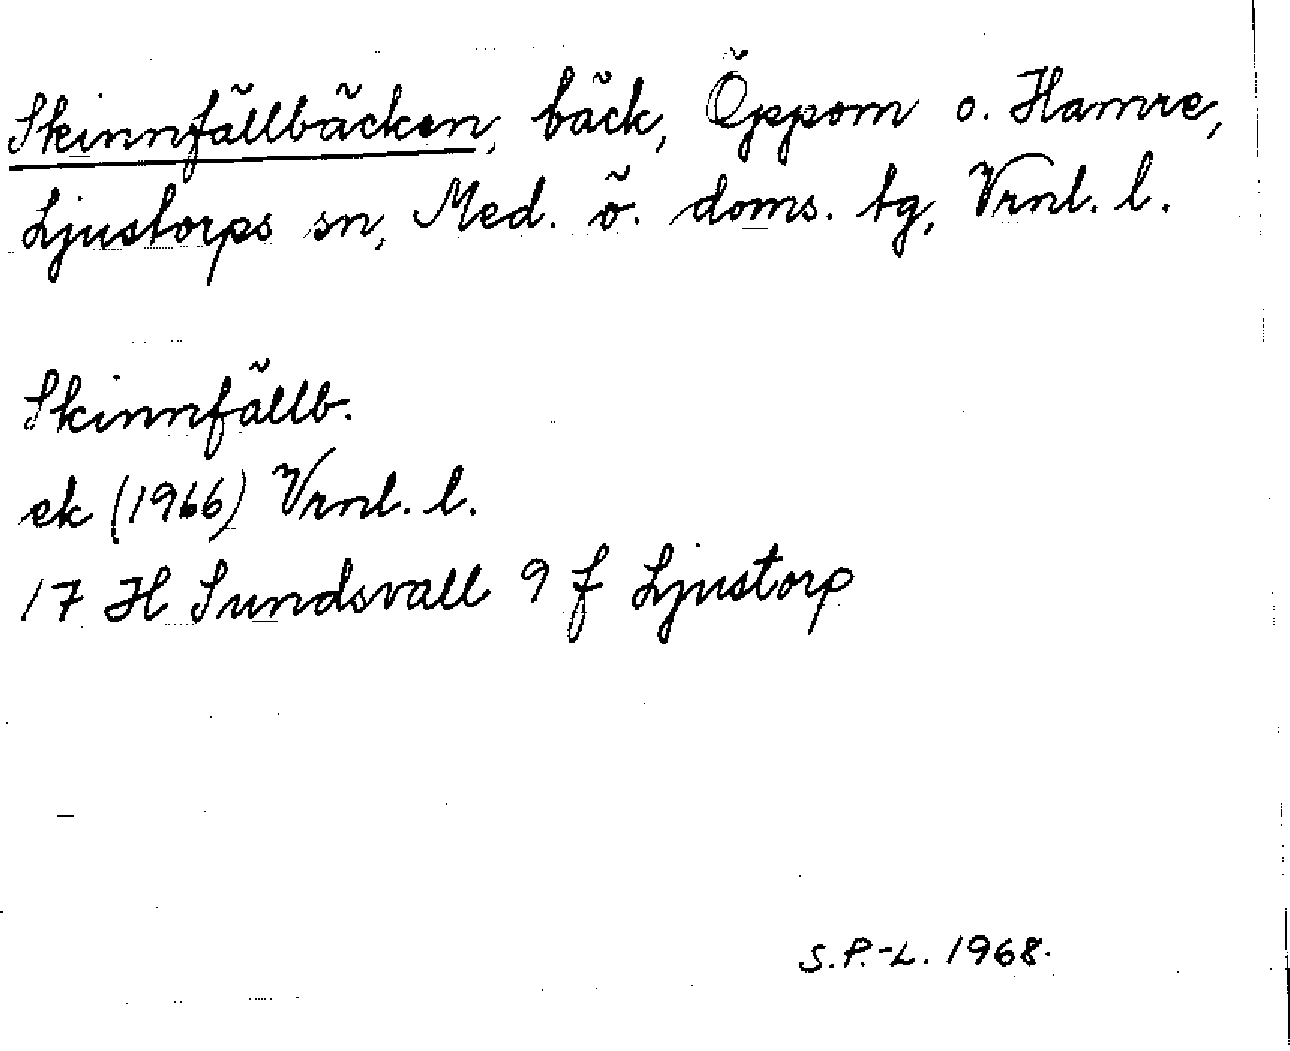 Skinnfällbäcken, bäck, Öppom o. Hamre,
Ljustorps sn, Med. ö. doms. tg, Vrnl. l.
Skinnfällb.
ek (1966) Vrnl. l.
17 H Sundsvall 9 f Ljustorp
S.P.-L. 1968.